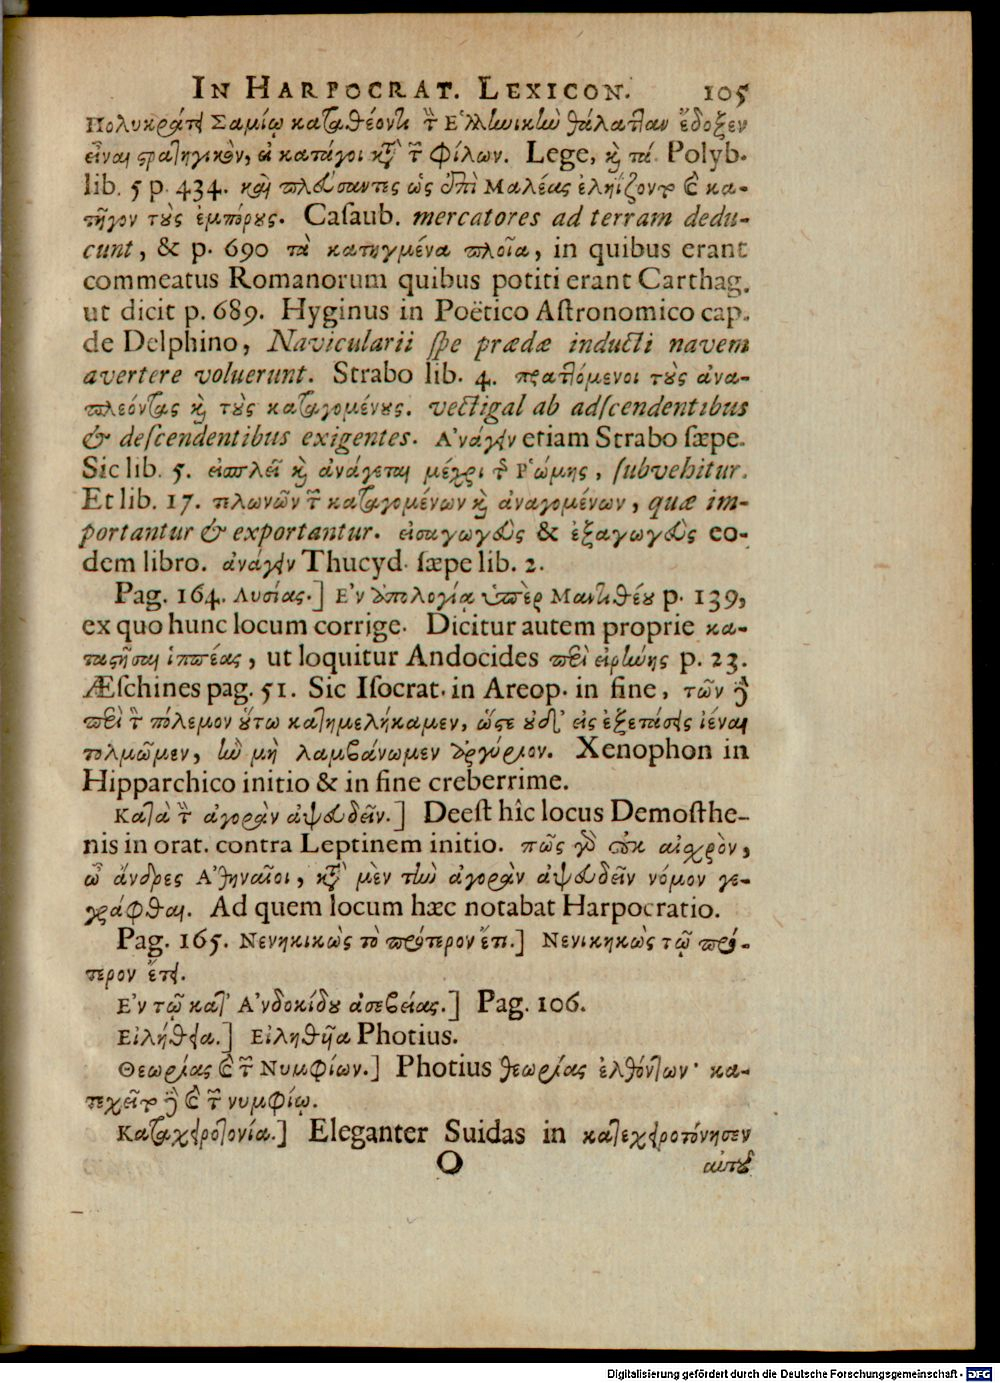 IN HARPOCRAT. LEXICON. 105
Πολυκράτει Σαμίῳ καταθέοντι τὴν Ἑλληνικὴν θάλατταν ἔδοξεν
εἶναι στρατηγικὸν, εἰ κατάγοι καὶ τῶν φίλων. Lege, καὶ τά. Polyb.
lib. 5 p. 434. καὶ πλεύσαντες ὡς ἐπὶ Μαλέας ἐληΐζοντο καὶ κα-
τῆγον τοὺς ἐμπόρους. Caſaub. mercatores ad terram dedu-
cunt, & p. 690 τὰ κατηγμένα πλοῖα, in quibus erant
commeatus Romanorum quibus potiti erant Carthag.
ut dicit p. 689. Hyginus in Poëtico Aſtronomico cap.
de Delphino, Navicularii ſpe prædæ inducti navem
avertere voluerunt. Strabo lib. 4. πραττόμενοι τοὺς ἀνα-
πλέοντας καὶ τοὺς καταγομένους. vectigal ab adſcendentibus
& deſcendentibus exigentes. Ἀνάγειν etiam Strabo ſæpe.
Sic lib. 5. εἰσπλεῖ καὶ ἀνάγεται μέχρι τῆς Ῥώμης, ſubvehitur.
Et lib. 17. τελωνῶν τῶν καταγομένων καὶ ἀναγομένων, quæ im-
portantur & exportantur. εἰσαγωγεὺς & ἐξαγωγεὺς eo-
dem libro. ἀνάγειν Thucyd. ſæpe lib. 2.
Pag. 164. Λυσίας.] Ἐν ἀπολογίᾳ ὑπὲρ Μαντιθέου p. 139,
ex quo hunc locum corrige. Dicitur autem proprie κα-
ταστῆσαι ἱππέας, ut loquitur Andocides περὶ εἰρήνης p. 23.
Æſchines pag. 51. Sic Iſocrat. in Areop. in fine, τῶν δὲ
περὶ τὸν πόλεμον οὕτω κατημελήκαμεν, ὥστε οὐδ' εἰς ἐξετάσεις ἰέναι
τολμῶμεν, ἢν μὴ λαμβάνωμεν ἀργύριον. Xenophon in
Hipparchico initio & in fine creberrime.
Κατὰ τὴν ἀγορὰν ἀψευδεῖν.] Deeſt hîc locus Demoſthe-
nis in orat. contra Leptinem initio. πῶς γὰρ οὐκ αἰσχρὸν,
ὦ ἄνδρες Ἀθηναῖοι, κατὰ μὲν τὴν ἀγορὰν ἀψευδεῖν νόμον γε-
γράφθαι. Ad quem locum hæc notabat Harpocratio.
Pag. 165. Νενηκικὼς τὸ πρότερον ἔτι.] Νενικηκὼς τῷ πρό-
τερον ἔτει.
Ἐν τῷ κατ' Ἀνδοκίδου ἀσεβείας.] Pag. 106.
Εἰλήθεια.] Εἰληθῆα Photius.
Θεωρίας καὶ τῶν Νυμφίων.] Photius θεωρίας ἐλθόντων· κα-
τεχεῖτο δὲ καὶ τῶν νυμφίῳ.
Καταχειροτονία.] Eleganter Suidas in κατεχειροτόνησεν
O αὐτοῦ
Digitalisierung gefördert durch die Deutsche Forschungsgemeinschaft - DFG